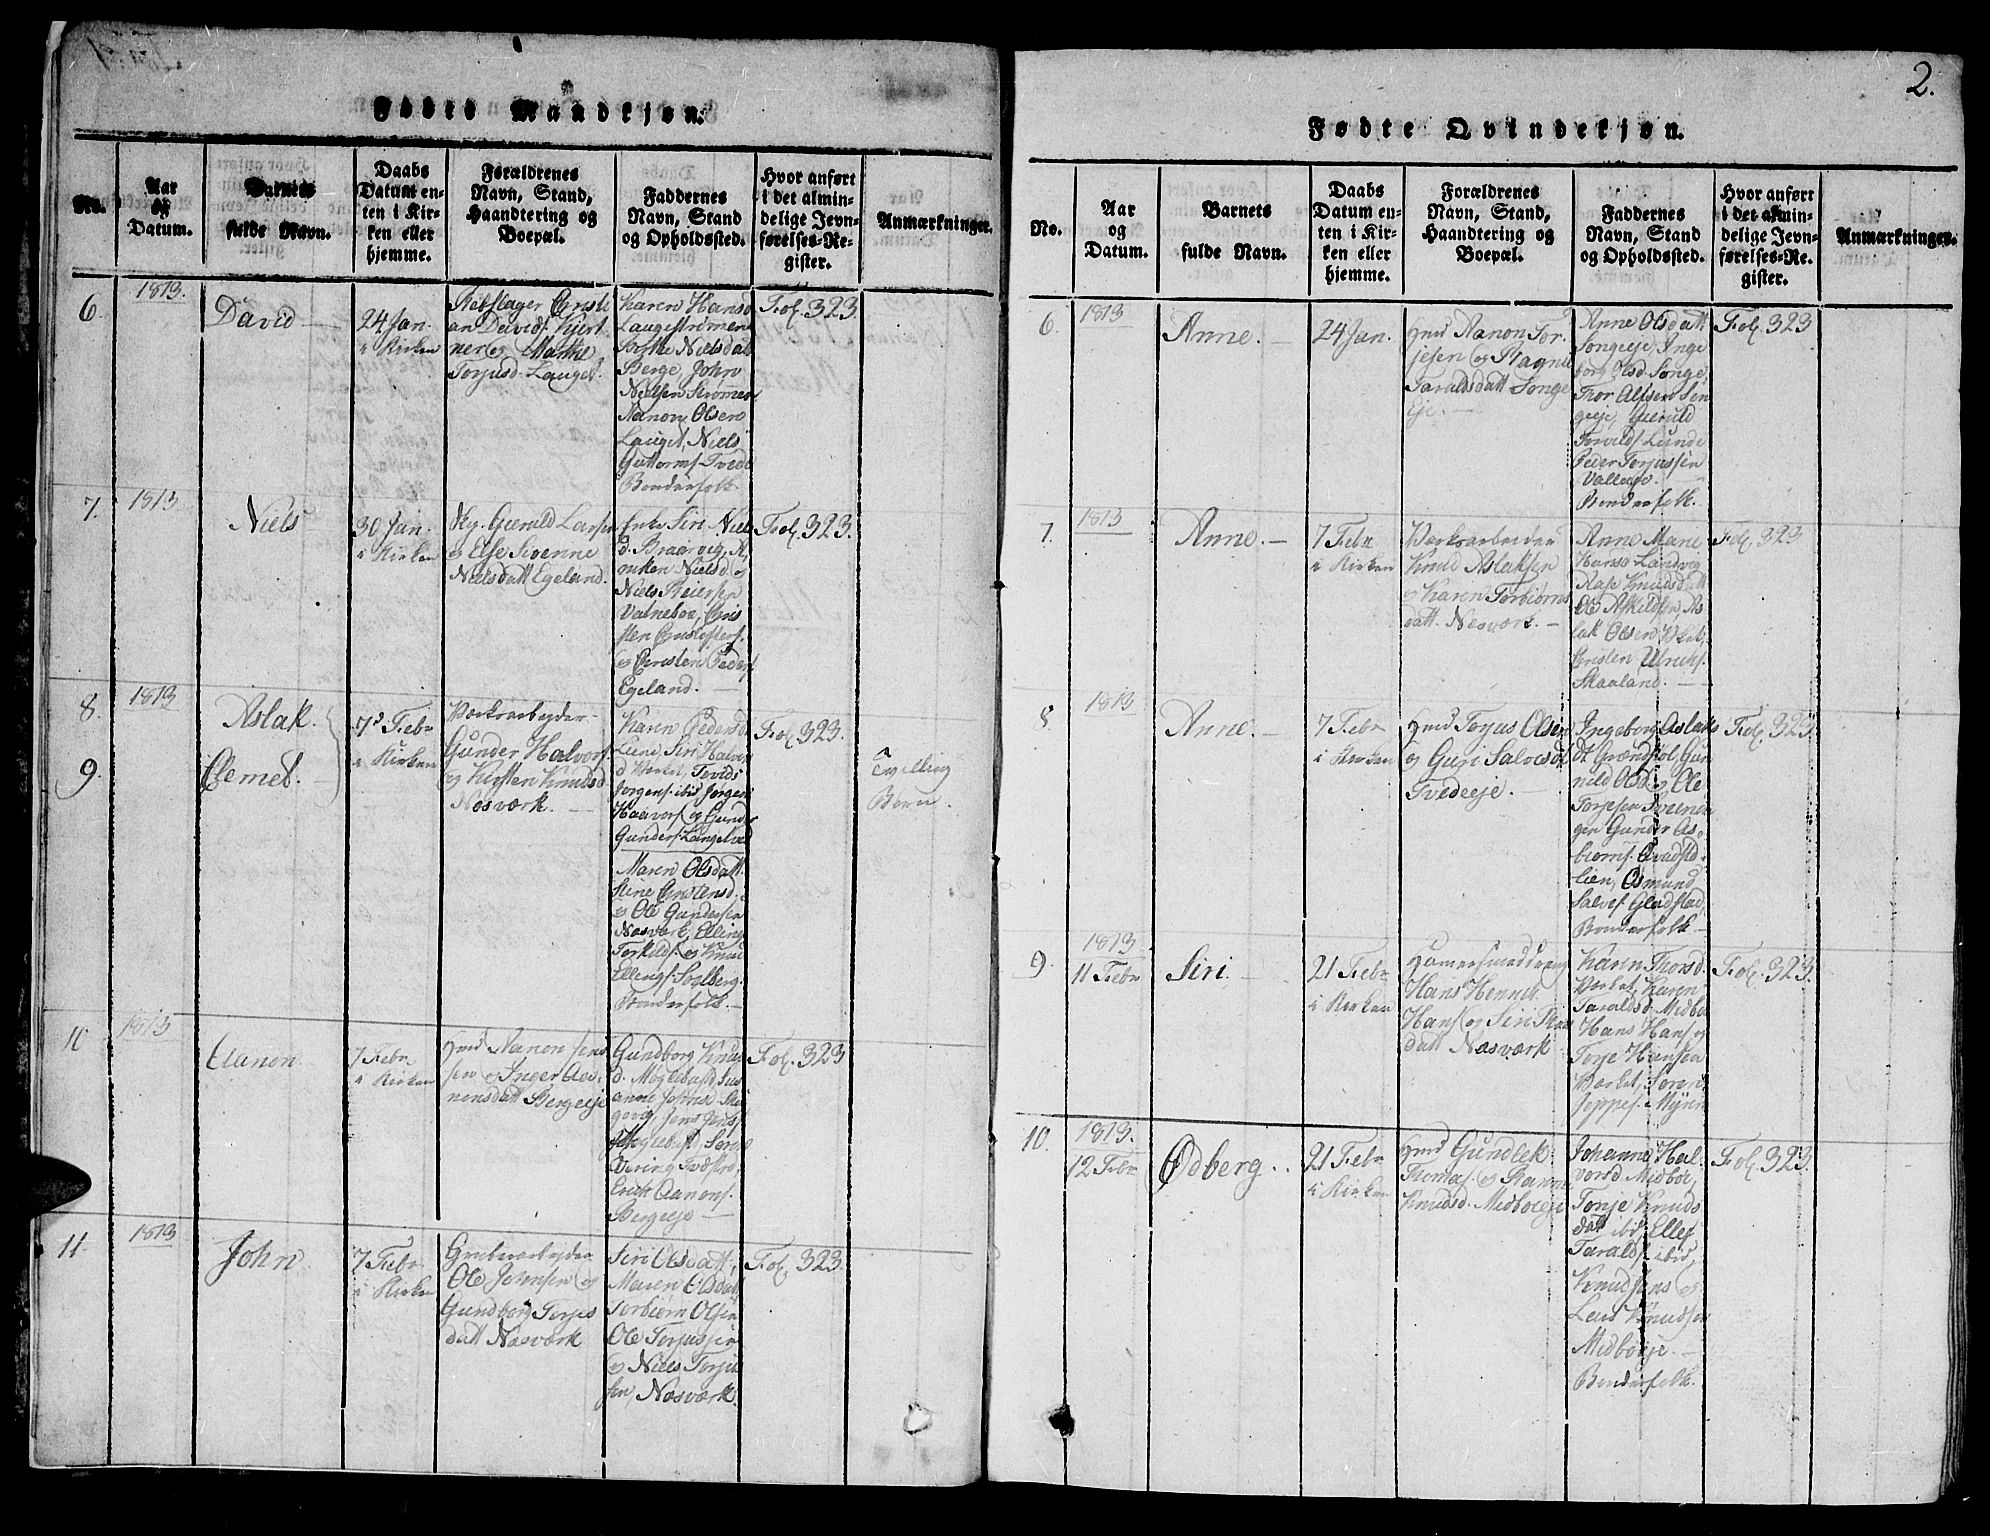 Fødte Mandkjøn.
No.
Aar
og
Datum.
Barnets
fulde Navn.
Daabs
Datum en-
ten i Kir-
ken eller
hjemme.
Forældrenes
Navn, Stand,
Haandtering og
Boepæl.
Faddernes
Navn, Stand
og Opholdssted.
Hvor anført
i det almin-
delige Jevn-
førelses-Re-
gister.
Anmærkninger.
6
1813.
David
24 Jan.
i Kirken
Christi
an Davids. Kjert
ner og Marthe
Torjusd. Lauget.
Karen Hansd
Laugestrømen
Nielsdat
Berge, John
Nielsen Strømen
Aanon Olsen
Lauget, Niels
Guttorms. Tvede
Bønderfolk.
Fol. 323
7.
1813
Niels
30 Jan.
i Kirken
Gieruld Larsen
og Else Sivenne
Nielsdatt Egeland.
Enke Siri Niels
d. Braarvig, A
niken Nielsd og
Niels Reiersen
Valneboe, Chris
ten Christophers.
og Christen Peders.
Egeland.
Fol. 323.
8.
1813
Aslak.
7d Febr
i Kirken
Værksarbeyder
Gunder Halvors.
og Kirsten Knudsd
Næsværk.
Karen Pedersd
Lund, Siri Halvors
d Værket, Tovids
Jørgens. ibid Jørgen
Haavors. og Gunder
Gunders. Langelved
Fol. 323.
9.
Clemet.
Maren Olsdatt.
Stine Christensd.
og Ole Gundersen
Næsværk, Elling
Torkilds. og Knud
Ellings. Solberg.
Bønderfolk.
Tvilling
Børn.
10
1813
Aanon.
7 Febr
i Kirken
Hmd Aanon Jens
sen og Inger Aa-
nonsdatt Bergeeje
Gundborg Knuds
d. Møglebust, Sus
anne
Jens Jens.
Møglebust, Søren
Erich Aanons.
Bergeeje
Fol. 323.
11.
1813
John.
7 Febr
i Kirken
Grubearbejder
Ole Johnsen og
Gundborg Torjes
datt Næsværk
Siri Olsdatt,
Maren Olsdatt
Torbiørn Olsen
Ole Torjussen
og Niels Torju
sen Næsværk.
Fol. 323.
2.
Fødte Qvindekjøn.
No.
Aar
og
Datum.
Barnets
fulde Navn.
Daabs
Datum en-
ten i Kir-
ken eller
hjemme.
Forældrenes
Navn, Stand,
Haandtering og
Boepæl.
Faddernes
Navn, Stand
og Opholdssted.
Hvor anført
i det almin-
delige Jevn-
førelses-Re-
gister.
Anmærkninger.
6
1813
Anne.
24 Jan.
Hmd Aanon Tor
jesen og Ragnil
Taraldsdatt Songe
eje.
Anne Olsdatt
Songeeje, Inge
borg Olsd Songe,
Thor Alfsen Son
geeje, Gieruld
Torvilds. Lunde
Peder Torjussen
Valleeje.
Bønderfolk.
Fol. 323
7.
1813
Anne.
7 Febr
i Kirken
Værksarbeider
Knud Aslaksen
og Karen Torbiørns
datt. Næsværk.
Anne Marie
Hansd Landvig
Aase Knudsdatt
Ole Askildsen, As
lak Olsen Værket,
Christen Ulrichs.
Skaaland.
Fol. 323
8
1813
Anne.
7 Febr
i Kirken
Hmd Torjus Olsen
og Guri Salvesdt
Tvedeeje.
Ingeborg Aslaks
dt Grændsøl, Gun
nild Olsd og Ole
Torjesen
gen Gunder As-
biørns. Qvadsted
lien, Osmund
Salves. Gladstad,
Bønderfolk.
Fol. 323.
9
1813
11 Febr
Siri.
21 Febr
i Kirken
Hamersmeddreng
Hans Hennet
Hans. og Siri
datt Næsværk
Karen Thorsd.
Værket, Karen
Taraldsd. Midbø
Hans Hans. og
Torje Hansen
Værket, Søren
Joppes. Myren
Fol. 323.
10.
1813.
12 Febr
Odberg.
21 Febr
i Kirken
Hmd Gundlek
Thomas. og
Knudsd. Midbøeje
Johanne Hal-
vorsd. Midbøe,
Tonje Knuds
datt ibid, Ellef
Taralds. ibid
Knud Jens. og
Lars Knudsen
Midbøeje.
Bønderfolk.
Fol. 323.